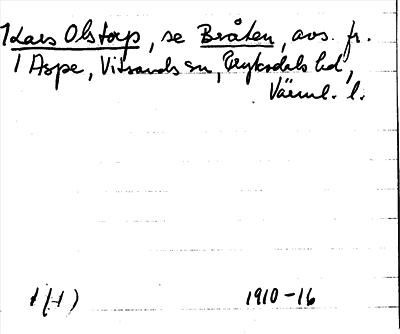 1 Lars Olstorp, se Bråten, avs. fr.
1 Aspe, Vitsands sn, Fryksdals hd,
Värml. l.
1910-16